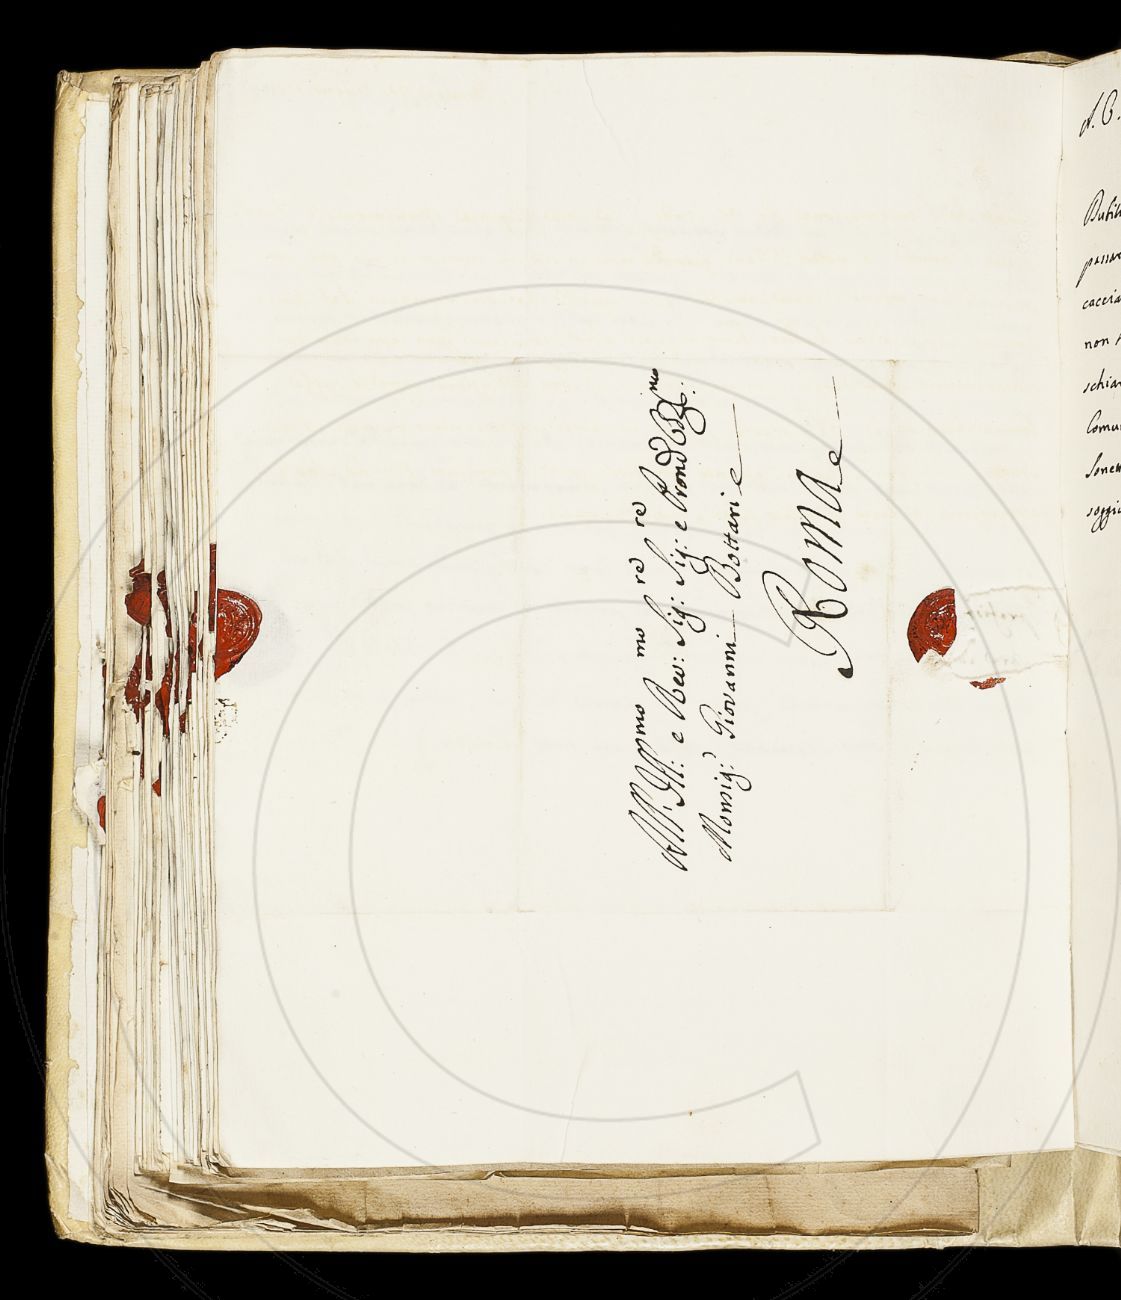 All' Ill:mo e Rev:mo Sig:re Sig:re e Pron Col.mo
Monsig.r Giovanni Bottari
Roma
A. C.
passar
caccia
non
schia
Comu
Sone
soggi